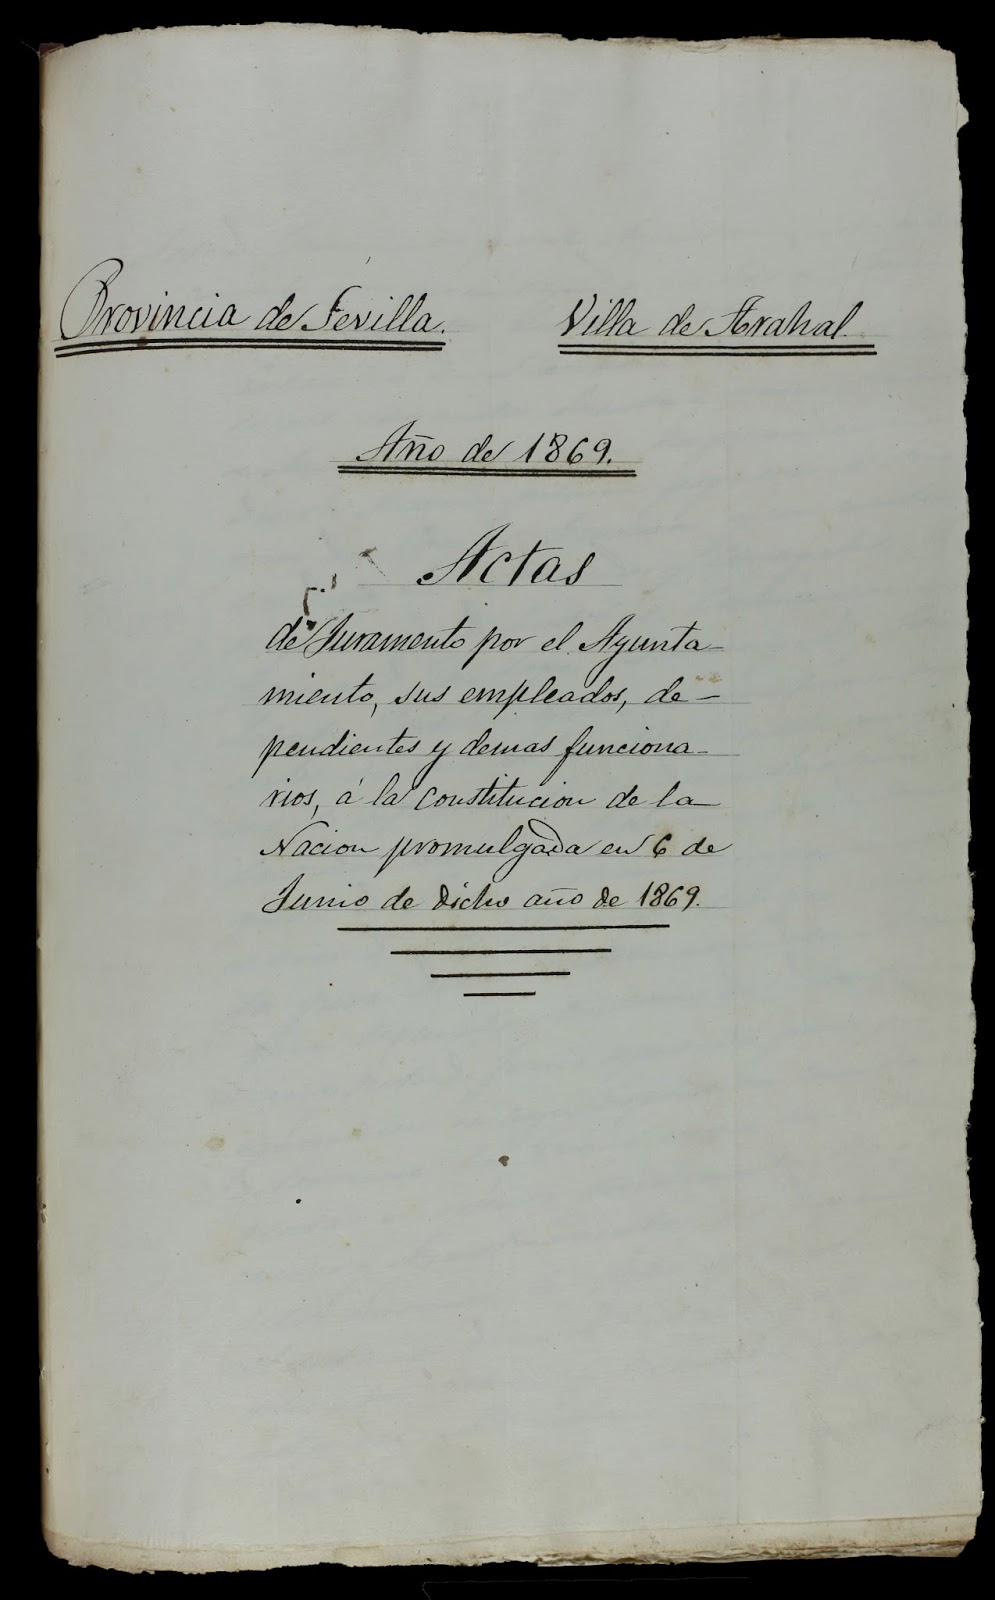 Provincia de Sevilla.
Villa de Arahal.
Año de 1869.
Actas
de Juramento por el Ayunta-
miento, sus empleados, de-
pendientes y demas funciona-
rios, á la Constitucion de la
Nacion promulgada en 6 de
Junio de dicho año de 1869.